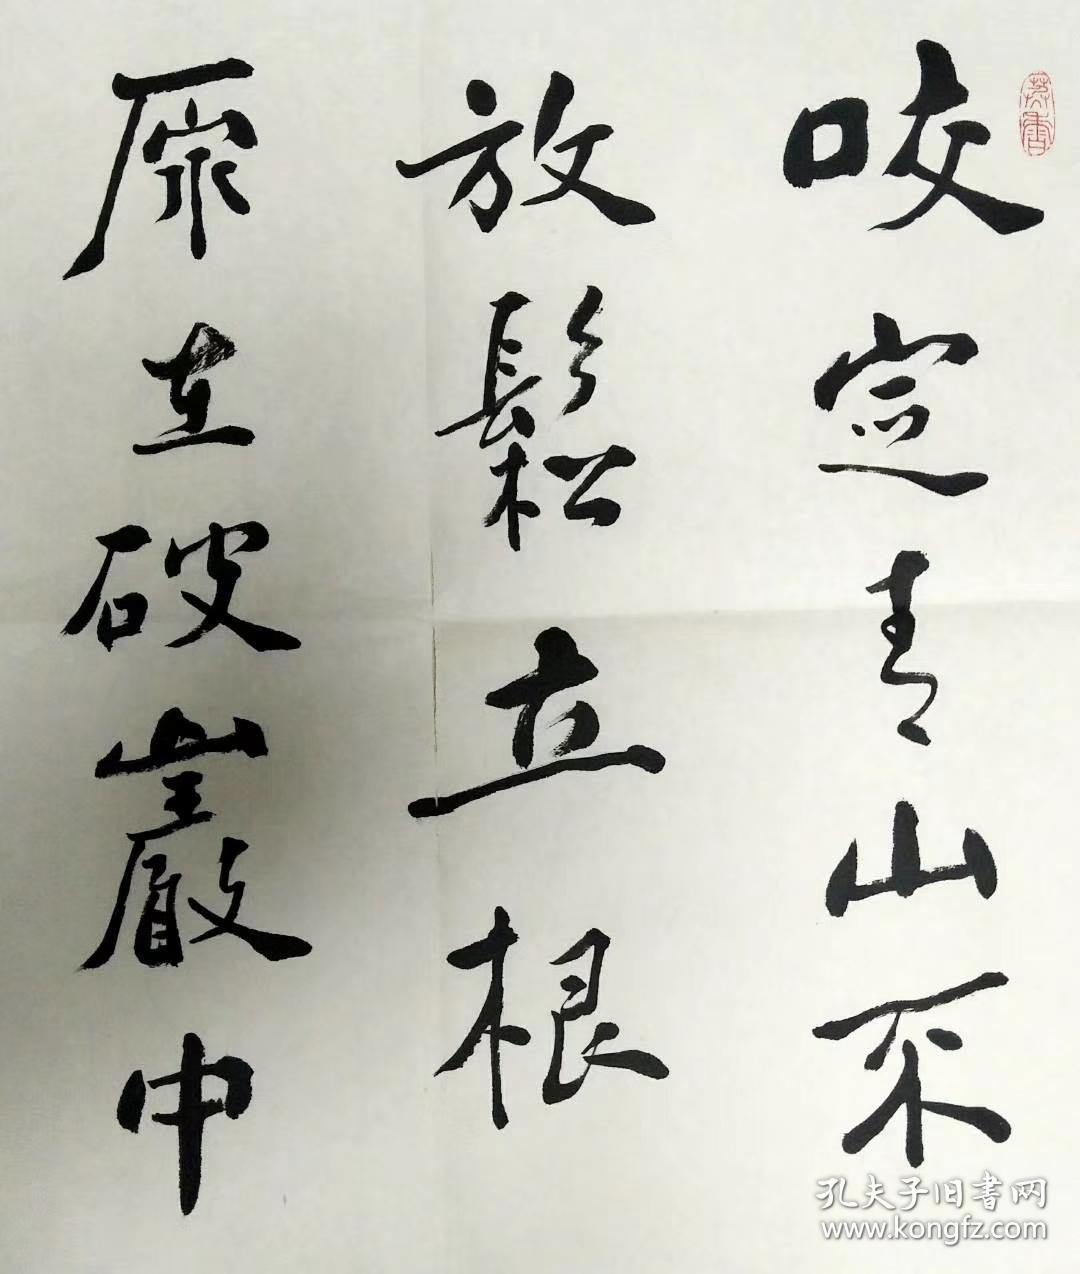 咬定青山不
放鬆立根
原在破巖中
孔夫子旧書网
www.kongfz.com